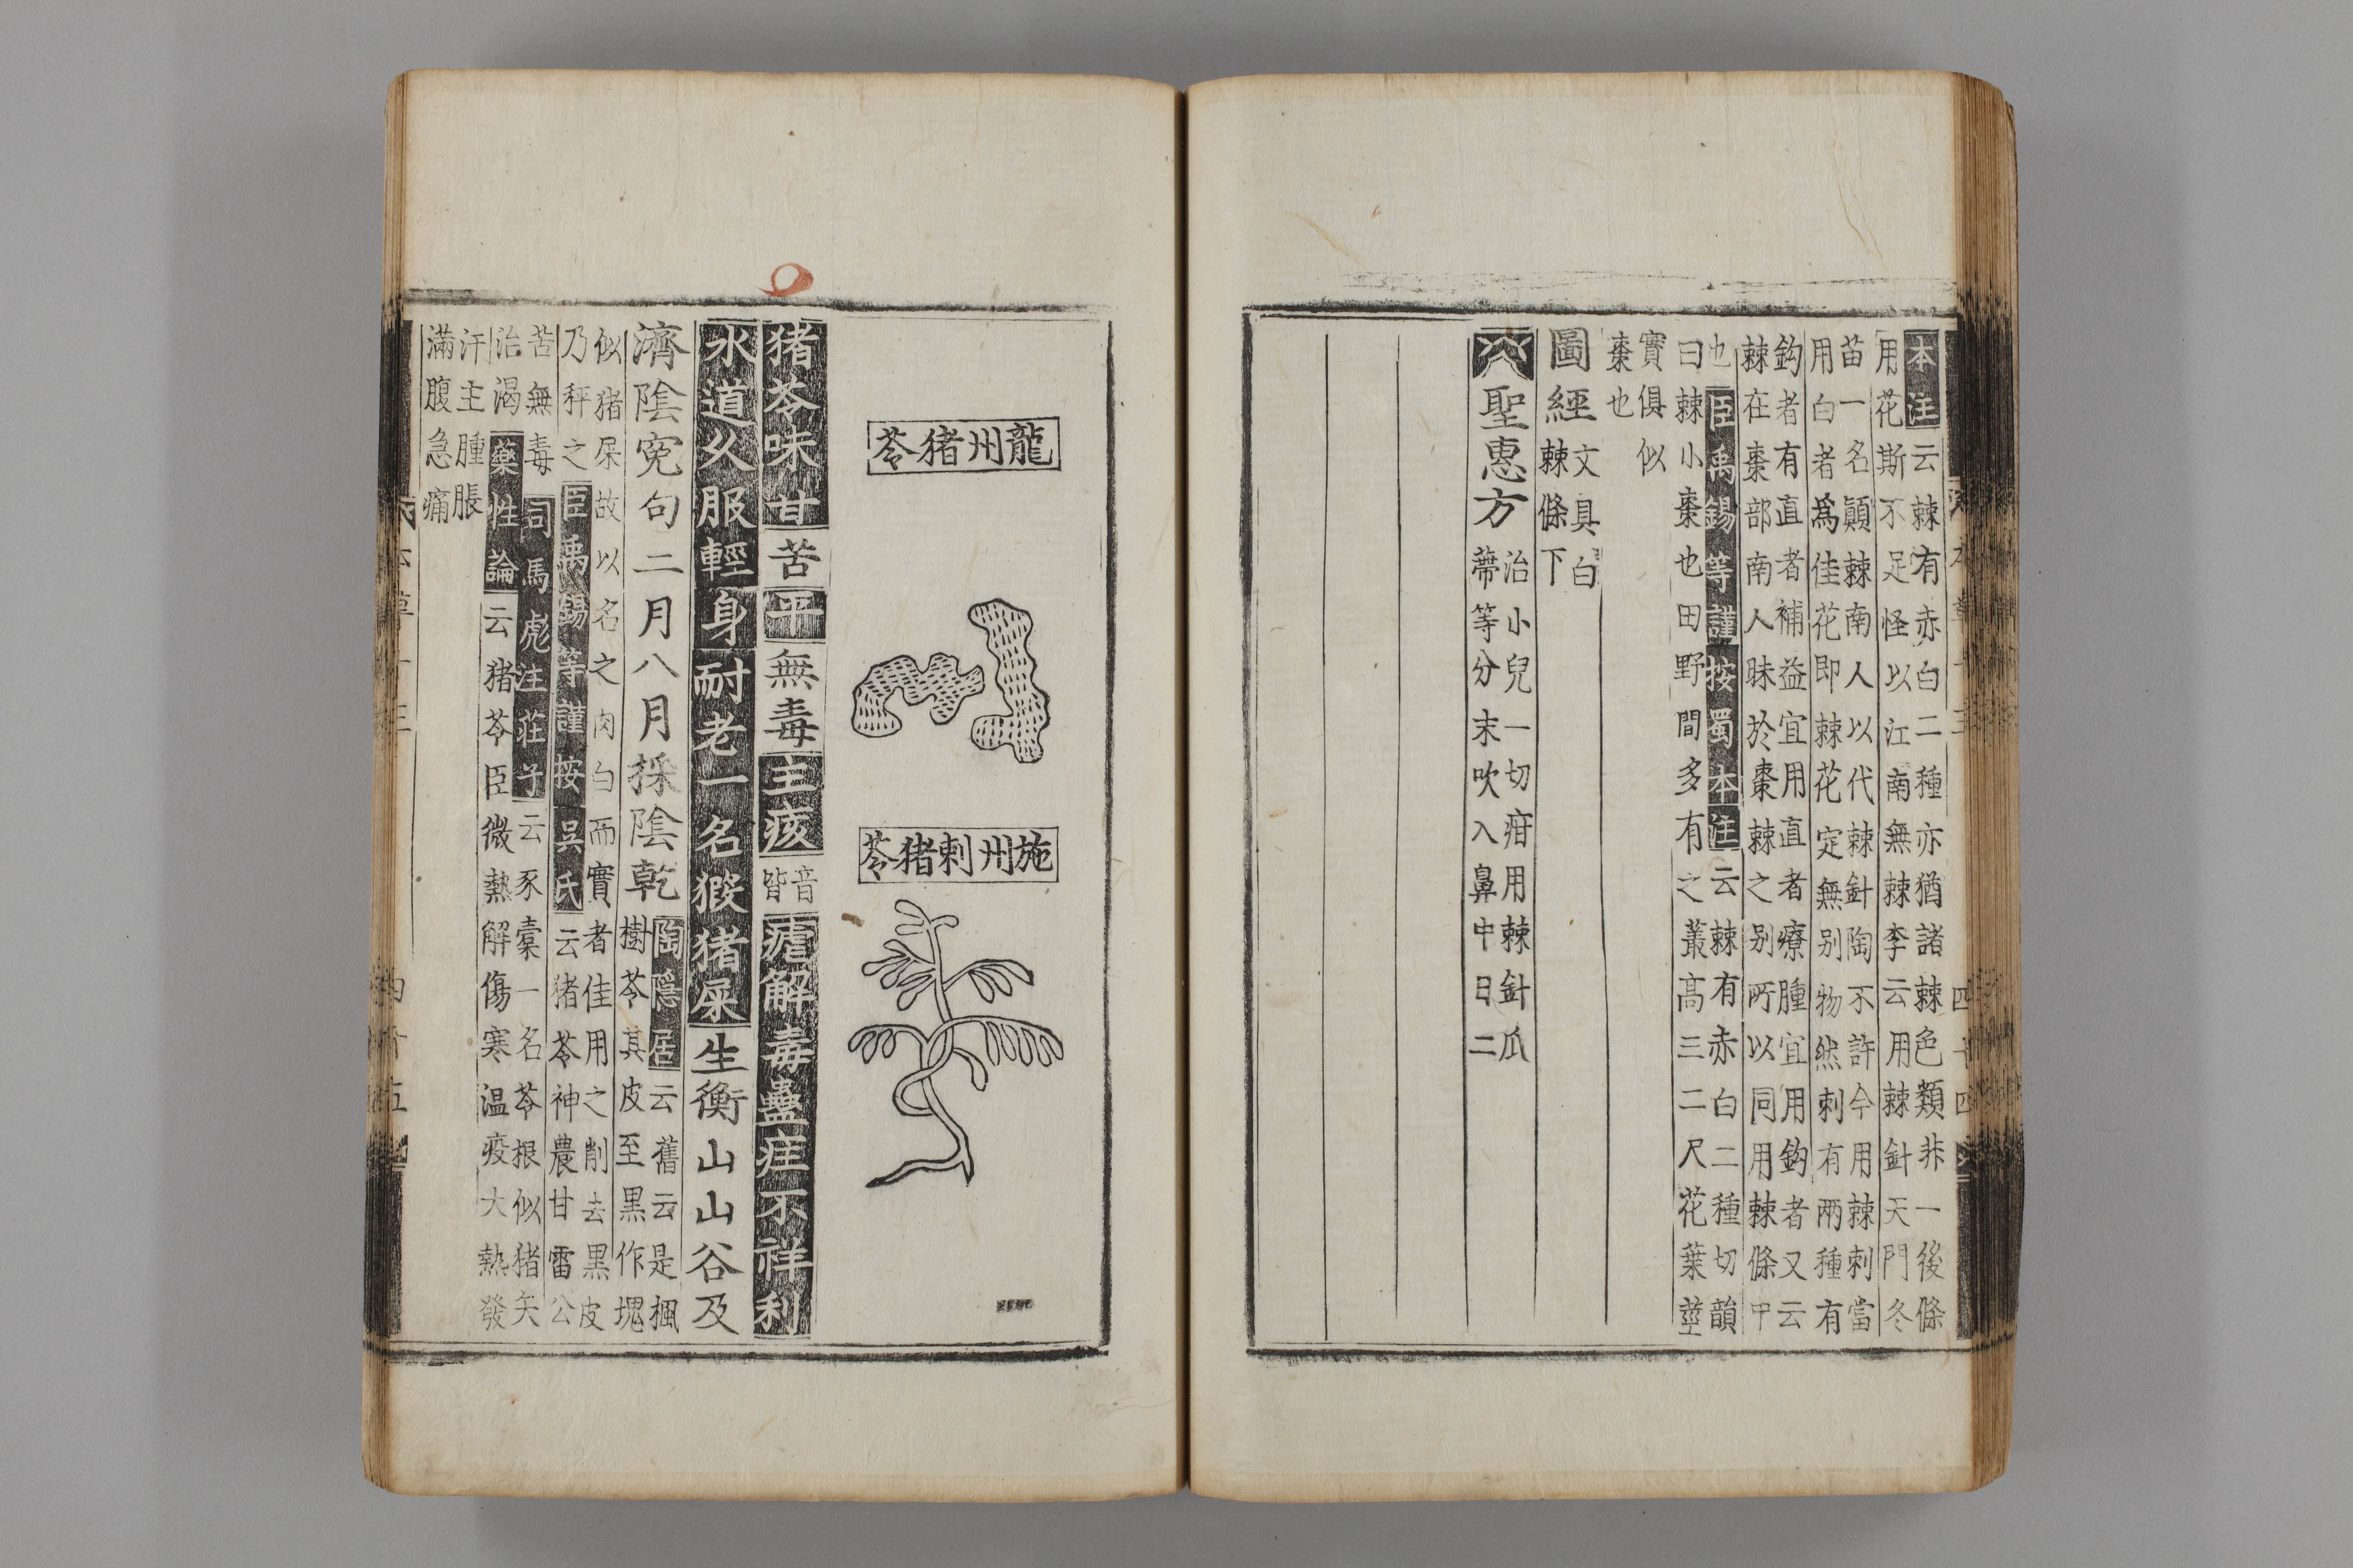 本注云棘有赤白二種亦猶諸棘色類非一後條
用花斯不足怪以江南無棘李云用棘針天門冬
苗一名顛棘南人以代棘針陶不許今用棘刺當
用白者爲佳花即棘花定無别物然刺有兩種有
鈎者有直者補益宜用直者療腫宜用鈎者又云
棘在棗部南人昧於棗棘之别所以同用棘條中
也臣禹錫等謹按蜀本注云棘有赤白二種切韻
曰棘小棗也田野間多有之叢高三二尺花葉莖
實俱似
棗也
圖經文具白
棘條下
聖惠方治小兒一切疳用棘針瓜
蔕等分末吹入鼻中日二
龍州猪苓
施州刺猪苓
猪苓味甘苦平無毒主痎音
皆瘧解毒蠱疰不祥利
水道久服輕身耐老一名猳猪屎生衡山山谷及
濟陰寃句二月八月採陰乾陶隱居云舊云是楓
樹苓其皮至黒作塊
似猪屎故以名之肉白而實者佳用之削去黒皮
乃秤之臣禹錫等謹按呉氏云猪苓神農甘雷公
苦無毒司馬彪注莊子云豕橐一名苓根似猪矢
治渴藥性論云猪苓臣微熱解傷寒温疫大熱發
汗主腫脹
滿腹急痛